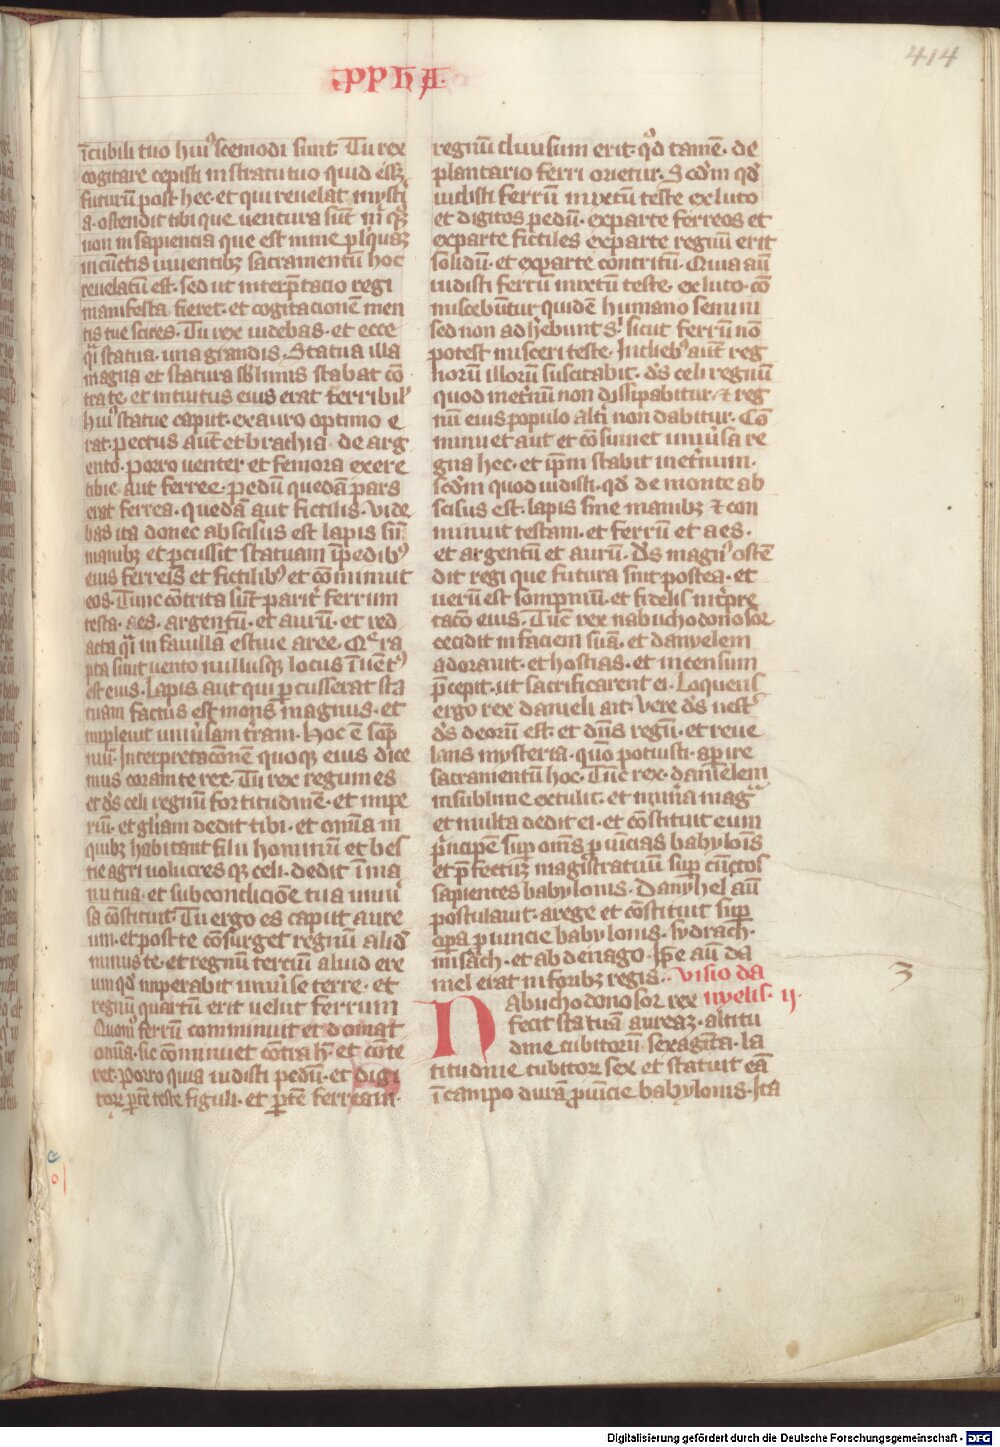 414
PPHA.
īcubili tuo huiꝰscemodi sunt. Tu rex
cogitare cepisti in stratu tuo quid eēt
futurū post hec. et qui reuelat mysti
a. ostendit tibi que uentura sūt m̄ qͦꝫ
non in sapiencia que est in me pl'quaꝫ
in cūctis uiuentibꝫ sacramentū hoc
reuelatū est. sed ut interp̄tacio regi
manifesta fieret. et cogitacionē men
tis tue scires. Tu rex uidebas. et ecce
qͣi statua. una grandis. Statua illa
magna et statura sb'limis stabat cō
tra te. et intuitus eius erat terribil'
huiꝰ statue caput. ex auro optimo e
rat. pectus aut̄ et brachia de arg
ento. porro uenter et femora ex ere
tibie aut ferree. pedū quedā pars
erat ferrea. quedā aut fictilis. Vide
bas ita donec abscisus est lapis sn̄
manibꝫ et pcussit statuam īpedibꝰ
eius ferreis et fictilibꝰ et cōminuit
eos. Tunc cōtrita sūt parit' ferrum
testa. aes. argentū. et aurū. et red
acta qͣi in fauillā estiue aree. Q̄ ra
pta sunt uento nullusqꝫ locus īuētꝰ
est eius. Lapis aut qui pcusserat sta
tuam factus est mons magnus. et
impleuit uniu'sam t'ram. Hoc ē sōp
niū. Interpretacōnē quoqꝫ eius dice
mus coram te rex. Tu rex regum es
et ds̄ celi regnū fortitudinē. et impe
riū. et gl'iam dedit tibi. et om̄ia in
quibꝫ habitant filii hominū et bes
tie agri uolucres qꝫ celi. dedit ī ma
nu tua. et sub condiciōe tua uniu'
sa cōstituit. Tu ergo es caput aure
um. et post te cōsurget regnū aliđ
minus te. et regnū terciū aliud ere
um qđ imperabit uniu'se terre. et
regnū quartū erit uelut ferrum
Quomͦ ferrū comminuit et domat
om̄ia. sic cōminuet cōtra h̄. et cōte
ret. Porro quia uidisti pedū. et digi
torꝝ ꝑtē teste figuli. et ꝑtē ferream.
regnū diuisum erit. qđ tamē. de
plantario ferri orietur. Scđm qđ
uidisti ferrū mixtū teste ex luto
et digitos pedū. ex parte ferreos et
ex parte fictiles ex parte regnū erit
solidū. et ex parte contritū. Quia aū
uidisti ferrū mixtū teste. ex luto. cō
miscebūtur quidē humano semini
sed non adhēbunt s'. sicut ferrū nō
potest misceri teste. In diebꝰ aut̄ reg
norū illorū suscitabit. ds̄ celi regnū
quod inet'nū non dissipabitur. ⁊ reg
nū eius populo alt'i non dabitur. Cō
minuet aut et cōsumet uniu'sa re
gna hec. et ip̄m stabit inet'num.
scđm quod uidisti. qđ de monte ab
scisus est. lapis sine manibꝫ ⁊ con
minuit testam. et ferrū et aes.
et argentū et aurū. Ds̄ magnꝰ ostē
dit regi que futura sint postea. et
uerū est sompniū. et fidelis int'pre
tacō eius. Tūc rex nabuchodonosor
cecidit in faciem suā. et danyelem
adorauit. et hostias. et incensum
p̄cepit. ut sacrificarent ei. Loquens
ergo rex danieli ait. Vere ds̄ uest'
ds̄ deorū est. et dn̄s regū. et reue
lans mysteria. quō potuisti. aperire
sacramentū hoc. Tūc rex. danielem
in sublime extulit. et mun'a magͣ
et multa dedit ei. et cōstituit eum
p̄ncipē suꝑ om̄s puincias babylois
et p̄fectuꝫ magistratuū suꝑ cūctos
sapientes babylonis. Danyhel aū
postulauit. a rege et cōstituit suꝑ
oꝑa puincie babylonis. sydrach.
misach. et abdenago. Ipse aū da
niel erat in foribꝫ regis. Visio da
Nabuchodonosor rex nyelis. ij.
fecit statuā aureaꝫ. altitu
dine cubitorū sexaginta. la
titudine cubitorꝝ sex et statuit eā
ī campo dura puincie babylonis. Ita
3
Digitalisierung gefördert durch die Deutsche Forschungsgemeinschaft - DFG